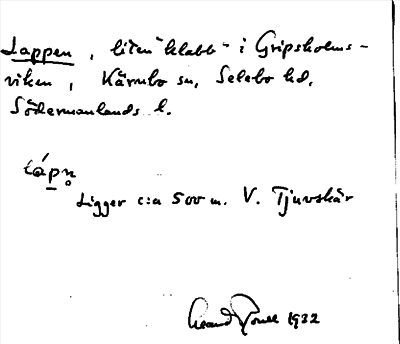 Lappen, liten "klabb" i Gripsholms-
viken, Kärnbo sn, Selebo hd,
Södermanlands l.
tápn̥
Ligger c:a 500 m. V. Tjuvskär
1932